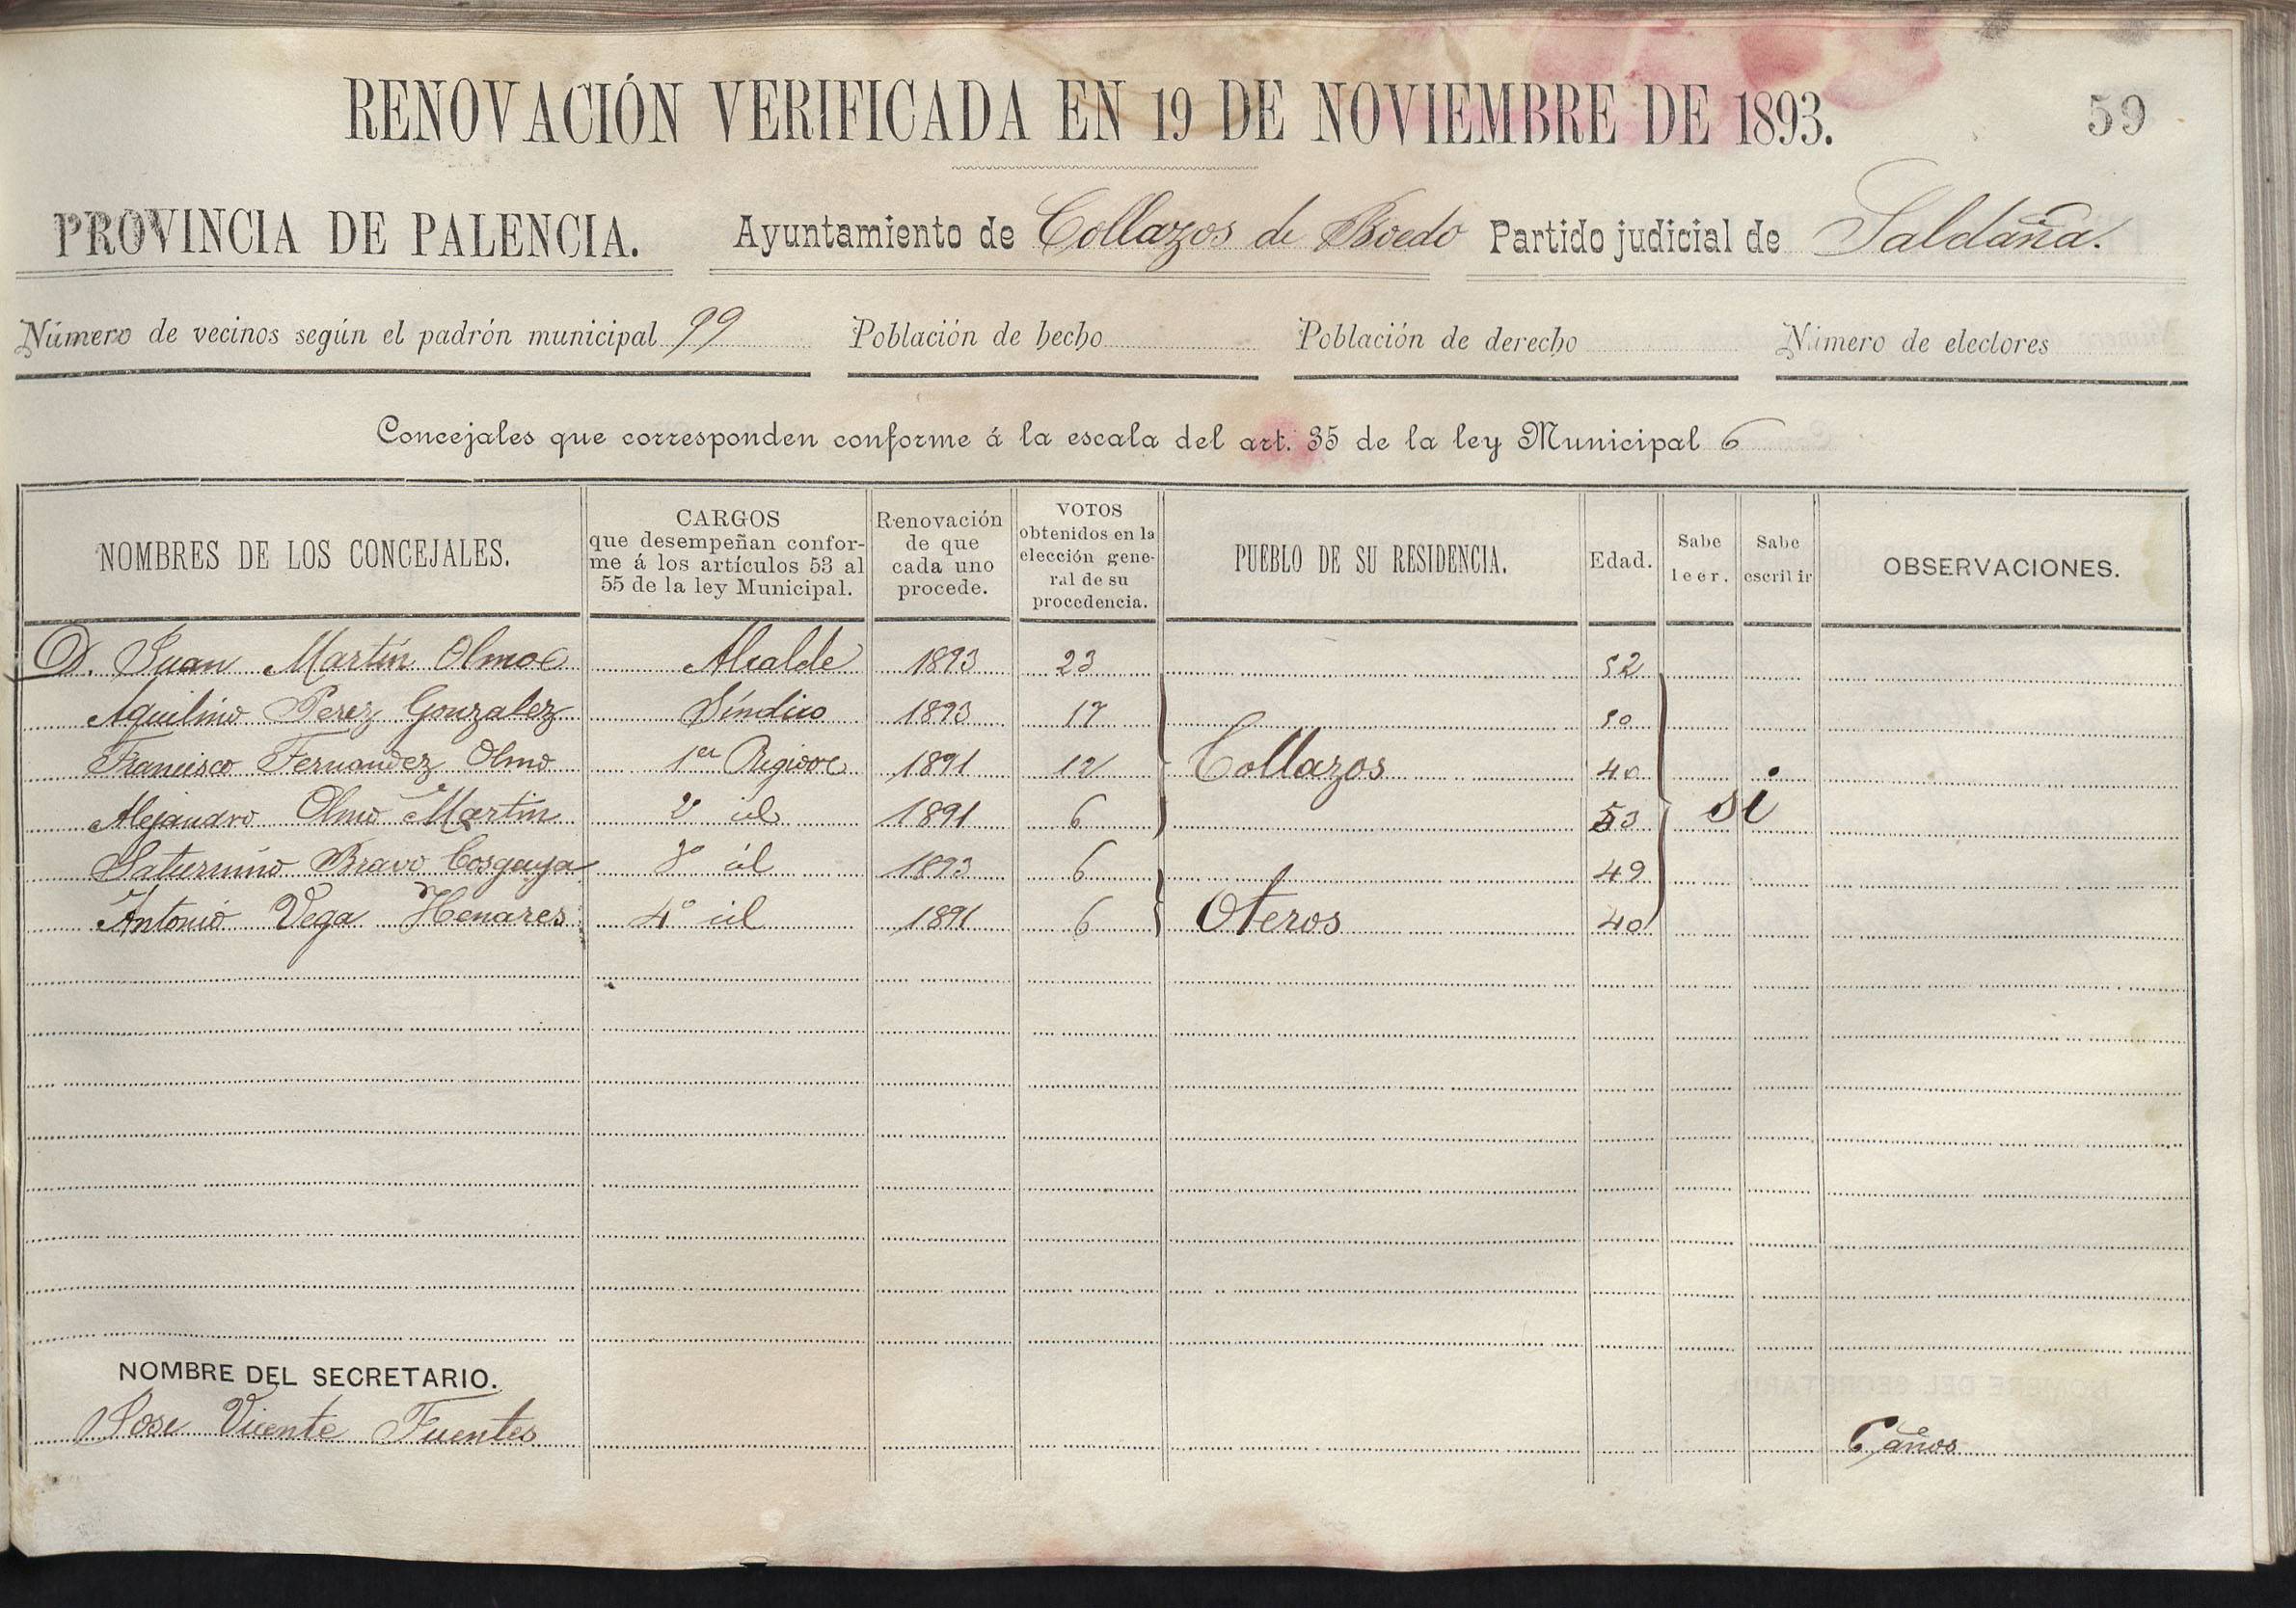 RENOVACIÓN VERIFICADA EN 19 DE NOVIEMBRE DE 1893.
59
PROVINCIA DE PALENCIA. Ayuntamiento de Collazos de Boedo Partido judicial de Saldaña.
Número de vecinos según el padrón municipal 99 Población de hecho Población de derecho Número de electores
Concejales que corresponden conforme á la escala del art. 35 de la ley Municipal 6
NOMBRES DE LOS CONCEJALES.
CARGOS
que desempeñan confor-
me á los artículos 53 al
55 de la ley Municipal.
Renovación
de que
cada uno
procede.
VOTOS
obtenidos en la
elección gene-
ral de su
procedencia.
PUEBLO DE SU RESIDENCIA.
Edad.
Sabe
leer.
Sabe
escribir
OBSERVACIONES.
D. Juan Martín Olmo Alcalde 1893 23 52
Aquilino Perez Gonzalez Síndico 1893 17 50
Francisco Fernandez Olmo 1er Regidor 1891 12 Collazos 40
Alejandro Olmo Martin 2º id 1891 6 53 si
Saturnino Bravo Cosgaya 3º id 1893 6 49
Antonio Vega Henares 4º id 1891 6 Oteros 40
NOMBRE DEL SECRETARIO.
Jose Vicente Fuentes 6 años